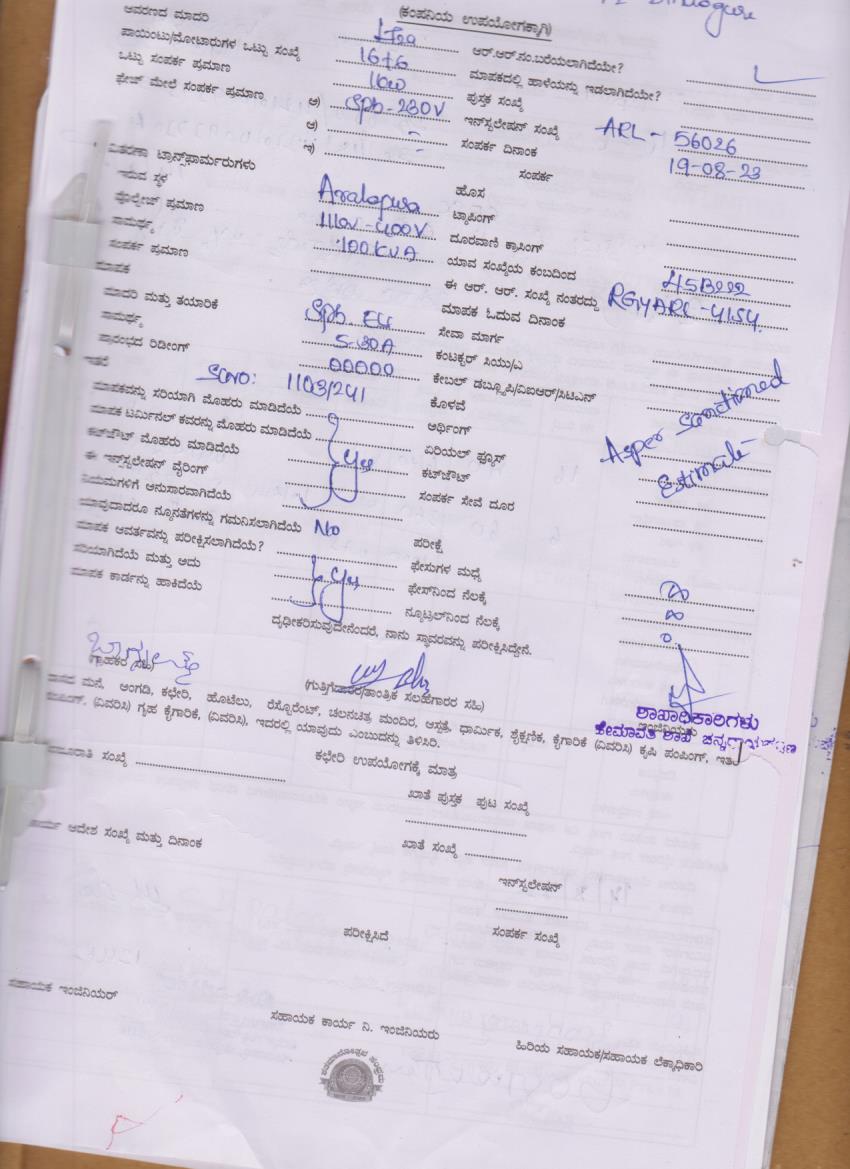 (ಕಂಪನಿಯ ಉಪಯೋಗಕ್ಕಾಗಿ)
ಆವರಣದ ಮಾದರಿ
ಪಾಯಿಂಟು/ಮೋಟಾರುಗಳ ಒಟ್ಟು ಸಂಖ್ಯೆ 16+6 ಆರ್.ಆರ್.ನಂ.ಬರೆಯಲಾಗಿದೆಯೇ?
ಒಟ್ಟು ಸಂಪರ್ಕ ಪ್ರಮಾಣ ಮಾಪಕದಲ್ಲಿ ಹಾಳೆಯನ್ನು ಇಡಲಾಗಿದೆಯೇ?
ಫೇಜ್ ಮೇಲೆ ಸಂಪರ್ಕ ಪ್ರಮಾಣ ಅ) Sph-230V ಪುಸ್ತಕ ಸಂಖ್ಯೆ
ಆ) - ಇನ್‌ಸ್ಟಲೇಷನ್ ಸಂಖ್ಯೆ ARL-56026
ಇ) - ಸಂಪರ್ಕ ದಿನಾಂಕ 19-08-23
ವಿತರಣಾ ಟ್ರಾನ್ಸ್‌ಫಾರ್ಮರುಗಳು ಸಂಪರ್ಕ
ಇರುವ ಸ್ಥಳ Aralapura ಹೊಸ
ವೋಲ್ಟೇಜ್ ಪ್ರಮಾಣ 11kv-400V ಟ್ಯಾಪಿಂಗ್
ಸಾಮರ್ಥ್ಯ 100KVA ದೂರವಾಣಿ ಕ್ರಾಸಿಂಗ್
ಸಂಪರ್ಕ ಪ್ರಮಾಣ ಯಾವ ಸಂಖ್ಯೆಯ ಕಂಬದಿಂದ
ಮಾಪಕ ಈ ಆರ್. ಆರ್. ಸಂಖ್ಯೆ ನಂತರದ್ದು RGYARL-4154
ಮಾದರಿ ಮತ್ತು ತಯಾರಿಕೆ Sph ಮಾಪಕ ಓದುವ ದಿನಾಂಕ
ಸಾಮರ್ಥ್ಯ 5-30A ಸೇವಾ ಮಾರ್ಗ
ಪ್ರಾರಂಭದ ರಿಡೀಂಗ್ 00000 ಕಂಟಕ್ಟರ್ ಸಿಯು/ಎ
ಇತರೆ ಕೇಬಲ್ ಡಬ್ಲ್ಯೂಪಿ/ವಿಐಆರ್/ಸಿಟಿಎನ್
ಕೊಳವೆ
ಮಾಪಕವನ್ನು ಸರಿಯಾಗಿ ಮೊಹರು ಮಾಡಿದೆಯೆ ಆರ್ಥಿಂಗ್ As per Sanctioned
ಮಾಪಕ ಟರ್ಮಿನಲ್ ಕವರನ್ನು ಮೊಹರು ಮಾಡಿದೆಯೆ ಏರಿಯಲ್ ಫ್ಯೂಸ್ Estimate
ಕಟ್‌ಔಟ್ ಮೊಹರು ಮಾಡಿದೆಯೆ Yes ಕಟ್‌ಔಟ್
ಈ ಇನ್‌ಸ್ಟಲೇಷನ್ ವೈರಿಂಗ್ ಸಂಪರ್ಕ ಸೇವೆ ದೂರ
ನಿಯಮಗಳಿಗೆ ಅನುಸಾರವಾಗಿದೆಯೆ
ಯಾವುದಾದರೂ ನ್ಯೂನತೆಗಳನ್ನು ಗಮನಿಸಲಾಗಿದೆಯೆ No ಪರೀಕ್ಷೆ
ಮಾಪಕ ಆವರ್ತವನ್ನು ಪರೀಕ್ಷಿಸಲಾಗಿದೆಯೆ? ಫೇಸುಗಳ ಮಧ್ಯೆ
ಸರಿಯಾಗಿದೆಯೆ ಮತ್ತು ಅದು Yes ಫೇಸ್‌ನಿಂದ ನೆಲಕ್ಕೆ
ಮಾಪಕ ಕಾರ್ಡನ್ನು ಹಾಕಿದೆಯೆ ನ್ಯೂಟ್ರಲ್‌ನಿಂದ ನೆಲಕ್ಕೆ
ದೃಢೀಕರಿಸುವುದೇನೆಂದರೆ, ನಾನು ಸ್ಥಾವರವನ್ನು ಪರೀಕ್ಷಿಸಿದ್ದೇನೆ.
(ಗ್ರಾಹಕರ ಸಹಿ) (ಗುತ್ತಿಗೆದಾರರ/ತಾಂತ್ರಿಕ ಸಲಹೆಗಾರರ ಸಹಿ)
ಶಾಖಾಧಿಕಾರಿಗಳು
ವಾಸದ ಮನೆ, ಅಂಗಡಿ, ಕಛೇರಿ, ಹೊಟೆಲು, ರೆಸ್ಟೊರೆಂಟ್, ಚಲನಚಿತ್ರ ಮಂದಿರ, ಆಸ್ಪತ್ರೆ, ಧಾರ್ಮಿಕ, ಶೈಕ್ಷಣಿಕ, ಕೈಗಾರಿಕೆ (ವಿವರಿಸಿ) ಕೃಷಿ ಪಂಪಿಂಗ್, ಇತರೆ
ಪಂಪಿಂಗ್, (ವಿವರಿಸಿ) ಗೃಹ ಕೈಗಾರಿಕೆ, (ವಿವರಿಸಿ), ಇದರಲ್ಲಿ ಯಾವುದು ಎಂಬುದನ್ನು ತಿಳಿಸಿರಿ.
ಸಂಖ್ಯೆ ಕಛೇರಿ ಉಪಯೋಗಕ್ಕೆ ಮಾತ್ರ
ಖಾತೆ ಪುಸ್ತಕ ಪುಟ ಸಂಖ್ಯೆ
ಆದೇಶ ಸಂಖ್ಯೆ ಮತ್ತು ದಿನಾಂಕ ಖಾತೆ ಸಂಖ್ಯೆ
ಇನ್‌ಸ್ಟಲೇಷನ್
ಪರೀಕ್ಷಿಸಿದೆ ಸಂಪರ್ಕ ಸಂಖ್ಯೆ
ಸಹಾಯಕ ಇಂಜಿನಿಯರ್
ಸಹಾಯಕ ಕಾರ್ಯ ನಿ. ಇಂಜಿನಿಯರು
ಹಿರಿಯ ಸಹಾಯಕ/ಸಹಾಯಕ ಲೆಕ್ಕಾಧಿಕಾರಿ